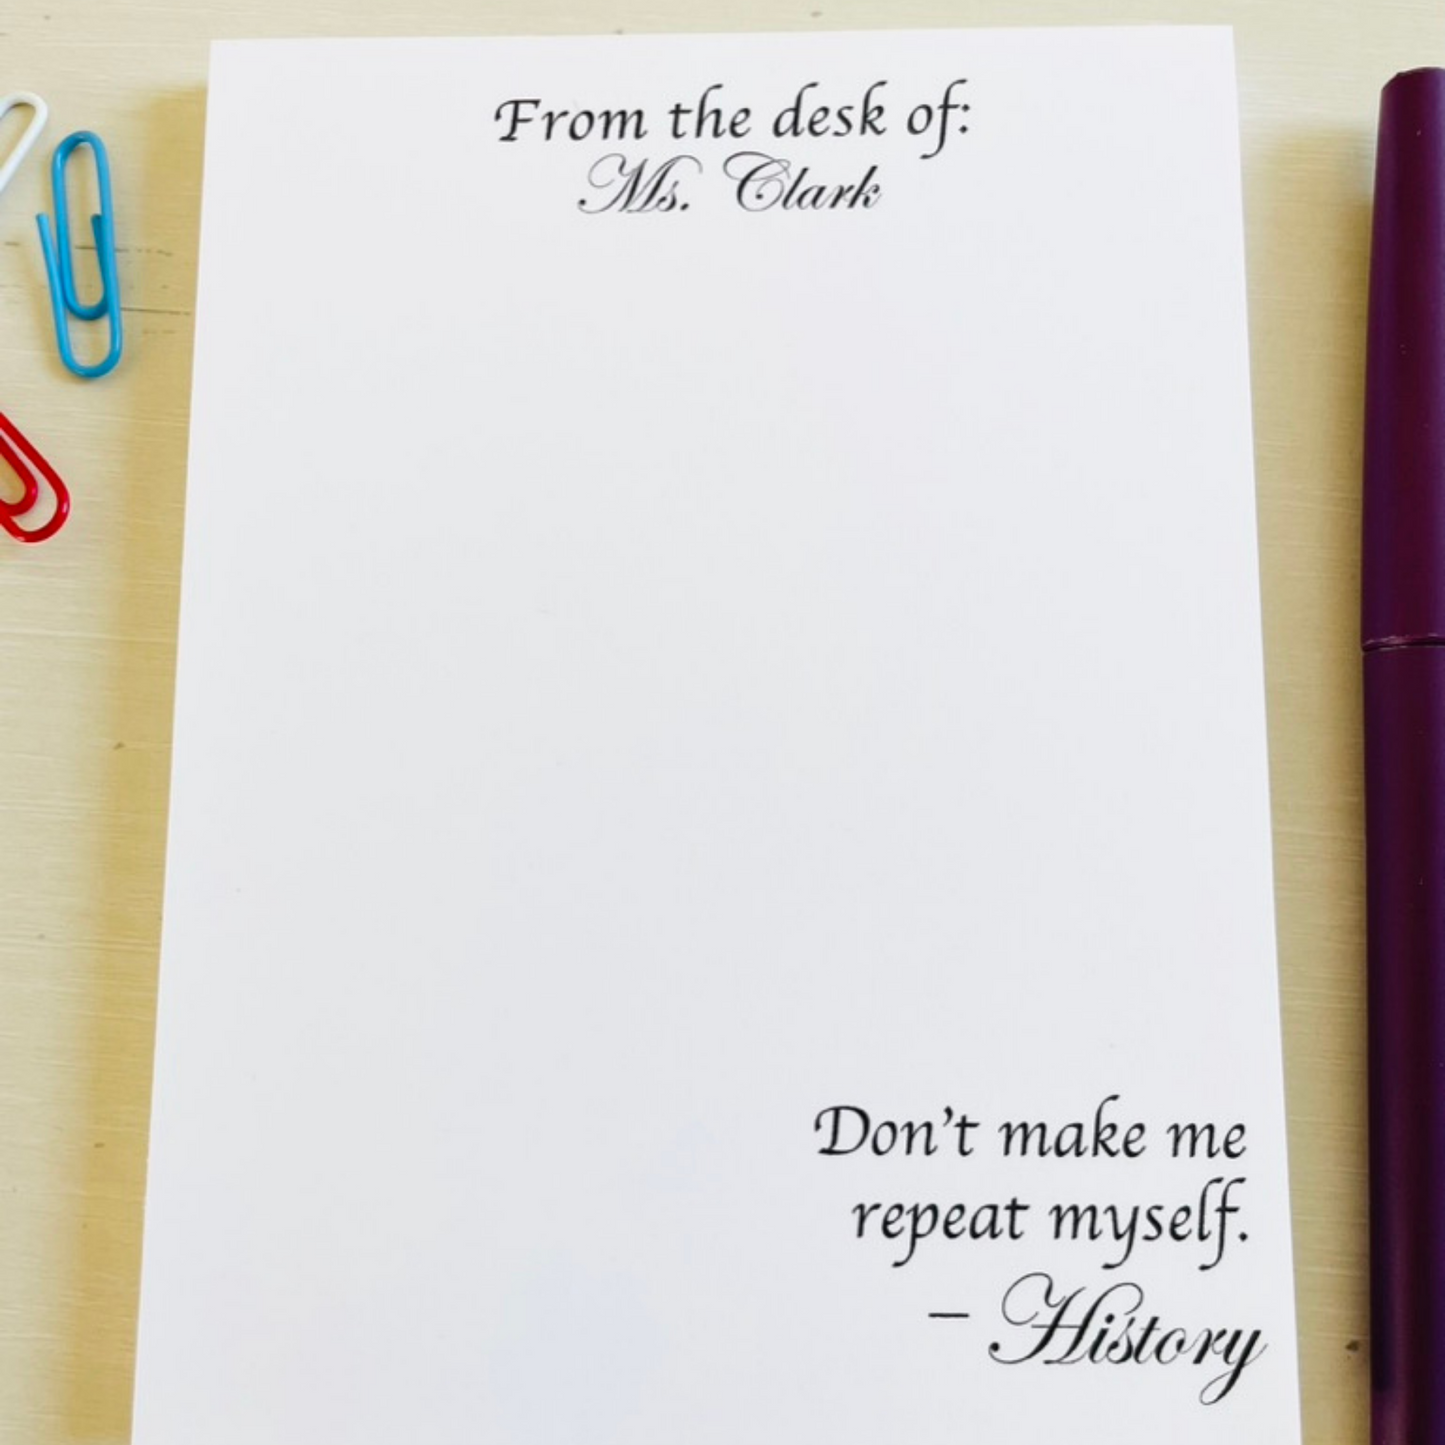 From the desk of:
Ms. Clark
Don't make me
repeat myself.
– History